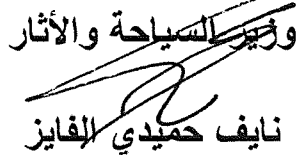 وزير السياحة والأثار
نايف حميدي الفايز